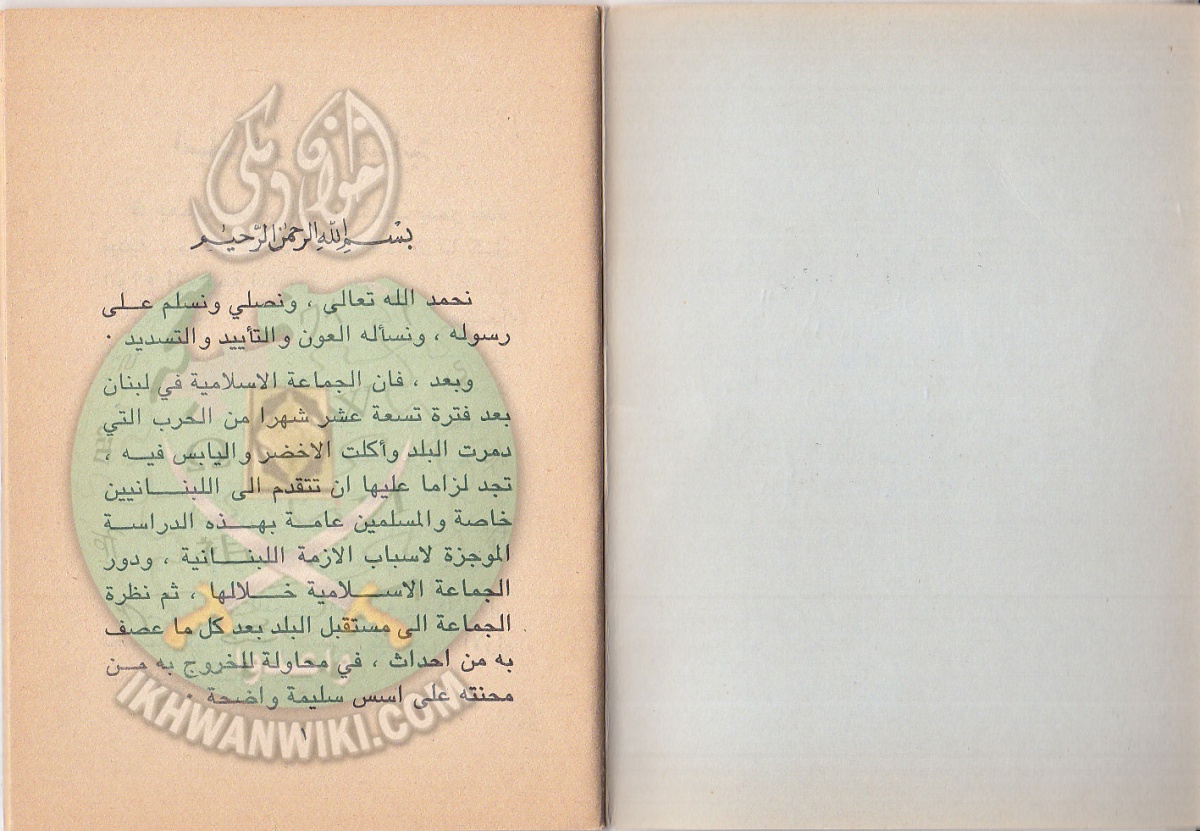 اخوان ويكي
بسم الله الرحمن الرحيم
نحمد الله تعالى ، ونصلي ونسلم على
رسوله ، ونسأله العون والتأييد والتسديد ٠
وبعد ، فان الجماعة الاسلامية في لبنان
بعد فترة تسعة عشر شهرا من الحرب التي
دمرت البلد وأكلت الاخضر واليابس فيه ،
تجد لزاما عليها ان تتقدم الى اللبنانيين
خاصة والمسلمين عامة بهذه الدراسة
الموجزة لاسباب الازمة اللبنانية ، ودور
الجماعة الاسلامية خلالها ، ثم نظرة
الجماعة الى مستقبل البلد بعد كل ما عصف
به من احداث ، في محاولة للخروج به من
محنته على اسس سليمة واضحة ٠
واعدوا
IKHWANWIKI.COM
١